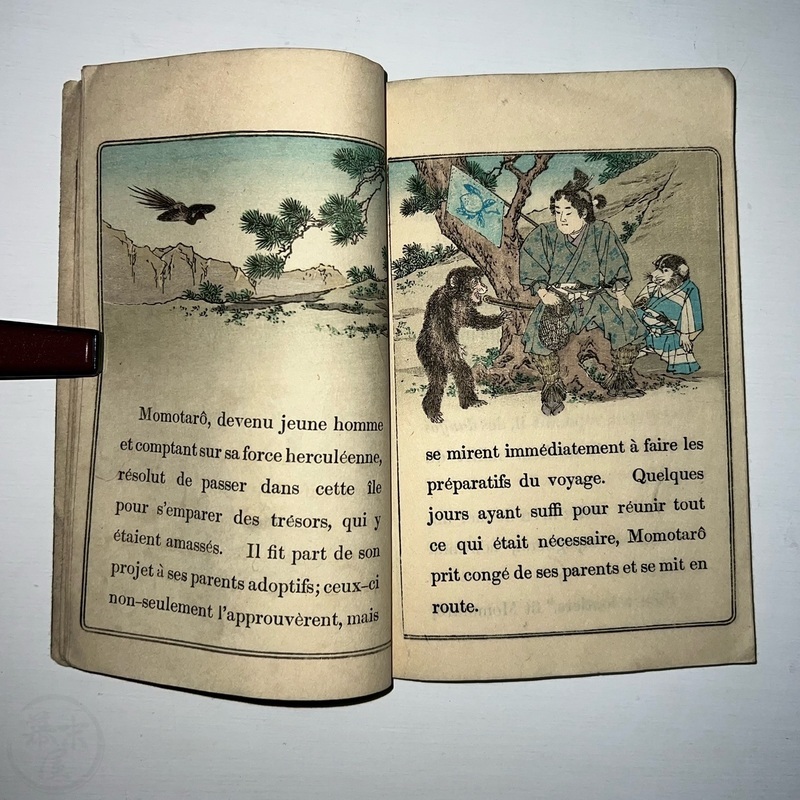 Momotarô, devenu jeune homme
et comptant sur sa force herculéenne,
résolut de passer dans cette île
pour s'emparer des trésors, qui y
étaient amassés. Il fit part de son
projet à ses parents adoptifs; ceux-ci
non-seulement l'approuvèrent, mais
se mirent immédiatement à faire les
préparatifs du voyage. Quelques
jours ayant suffi pour réunir tout
ce qui était nécessaire, Momotarô
prit congé de ses parents et se mit en
route.